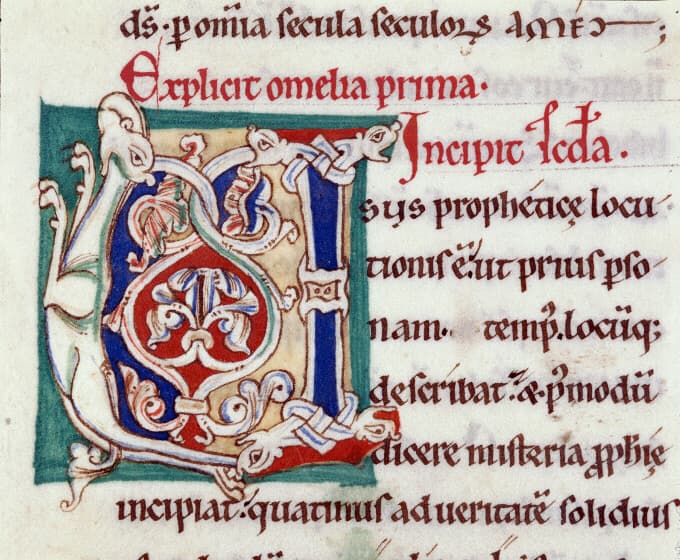 ds̄. ꝑ om̄ia secula seculoꝝ AMEN;
Explicit omelia prima.
Incipit scd̄a.
Usus propheticę locu
tionis ē. ut prius ꝑso
nam. temp̄. locūq;
describat. & p̄modū
dicere misteria ꝓph̄ię
incipiat. quatinus ad ueritatē solidius